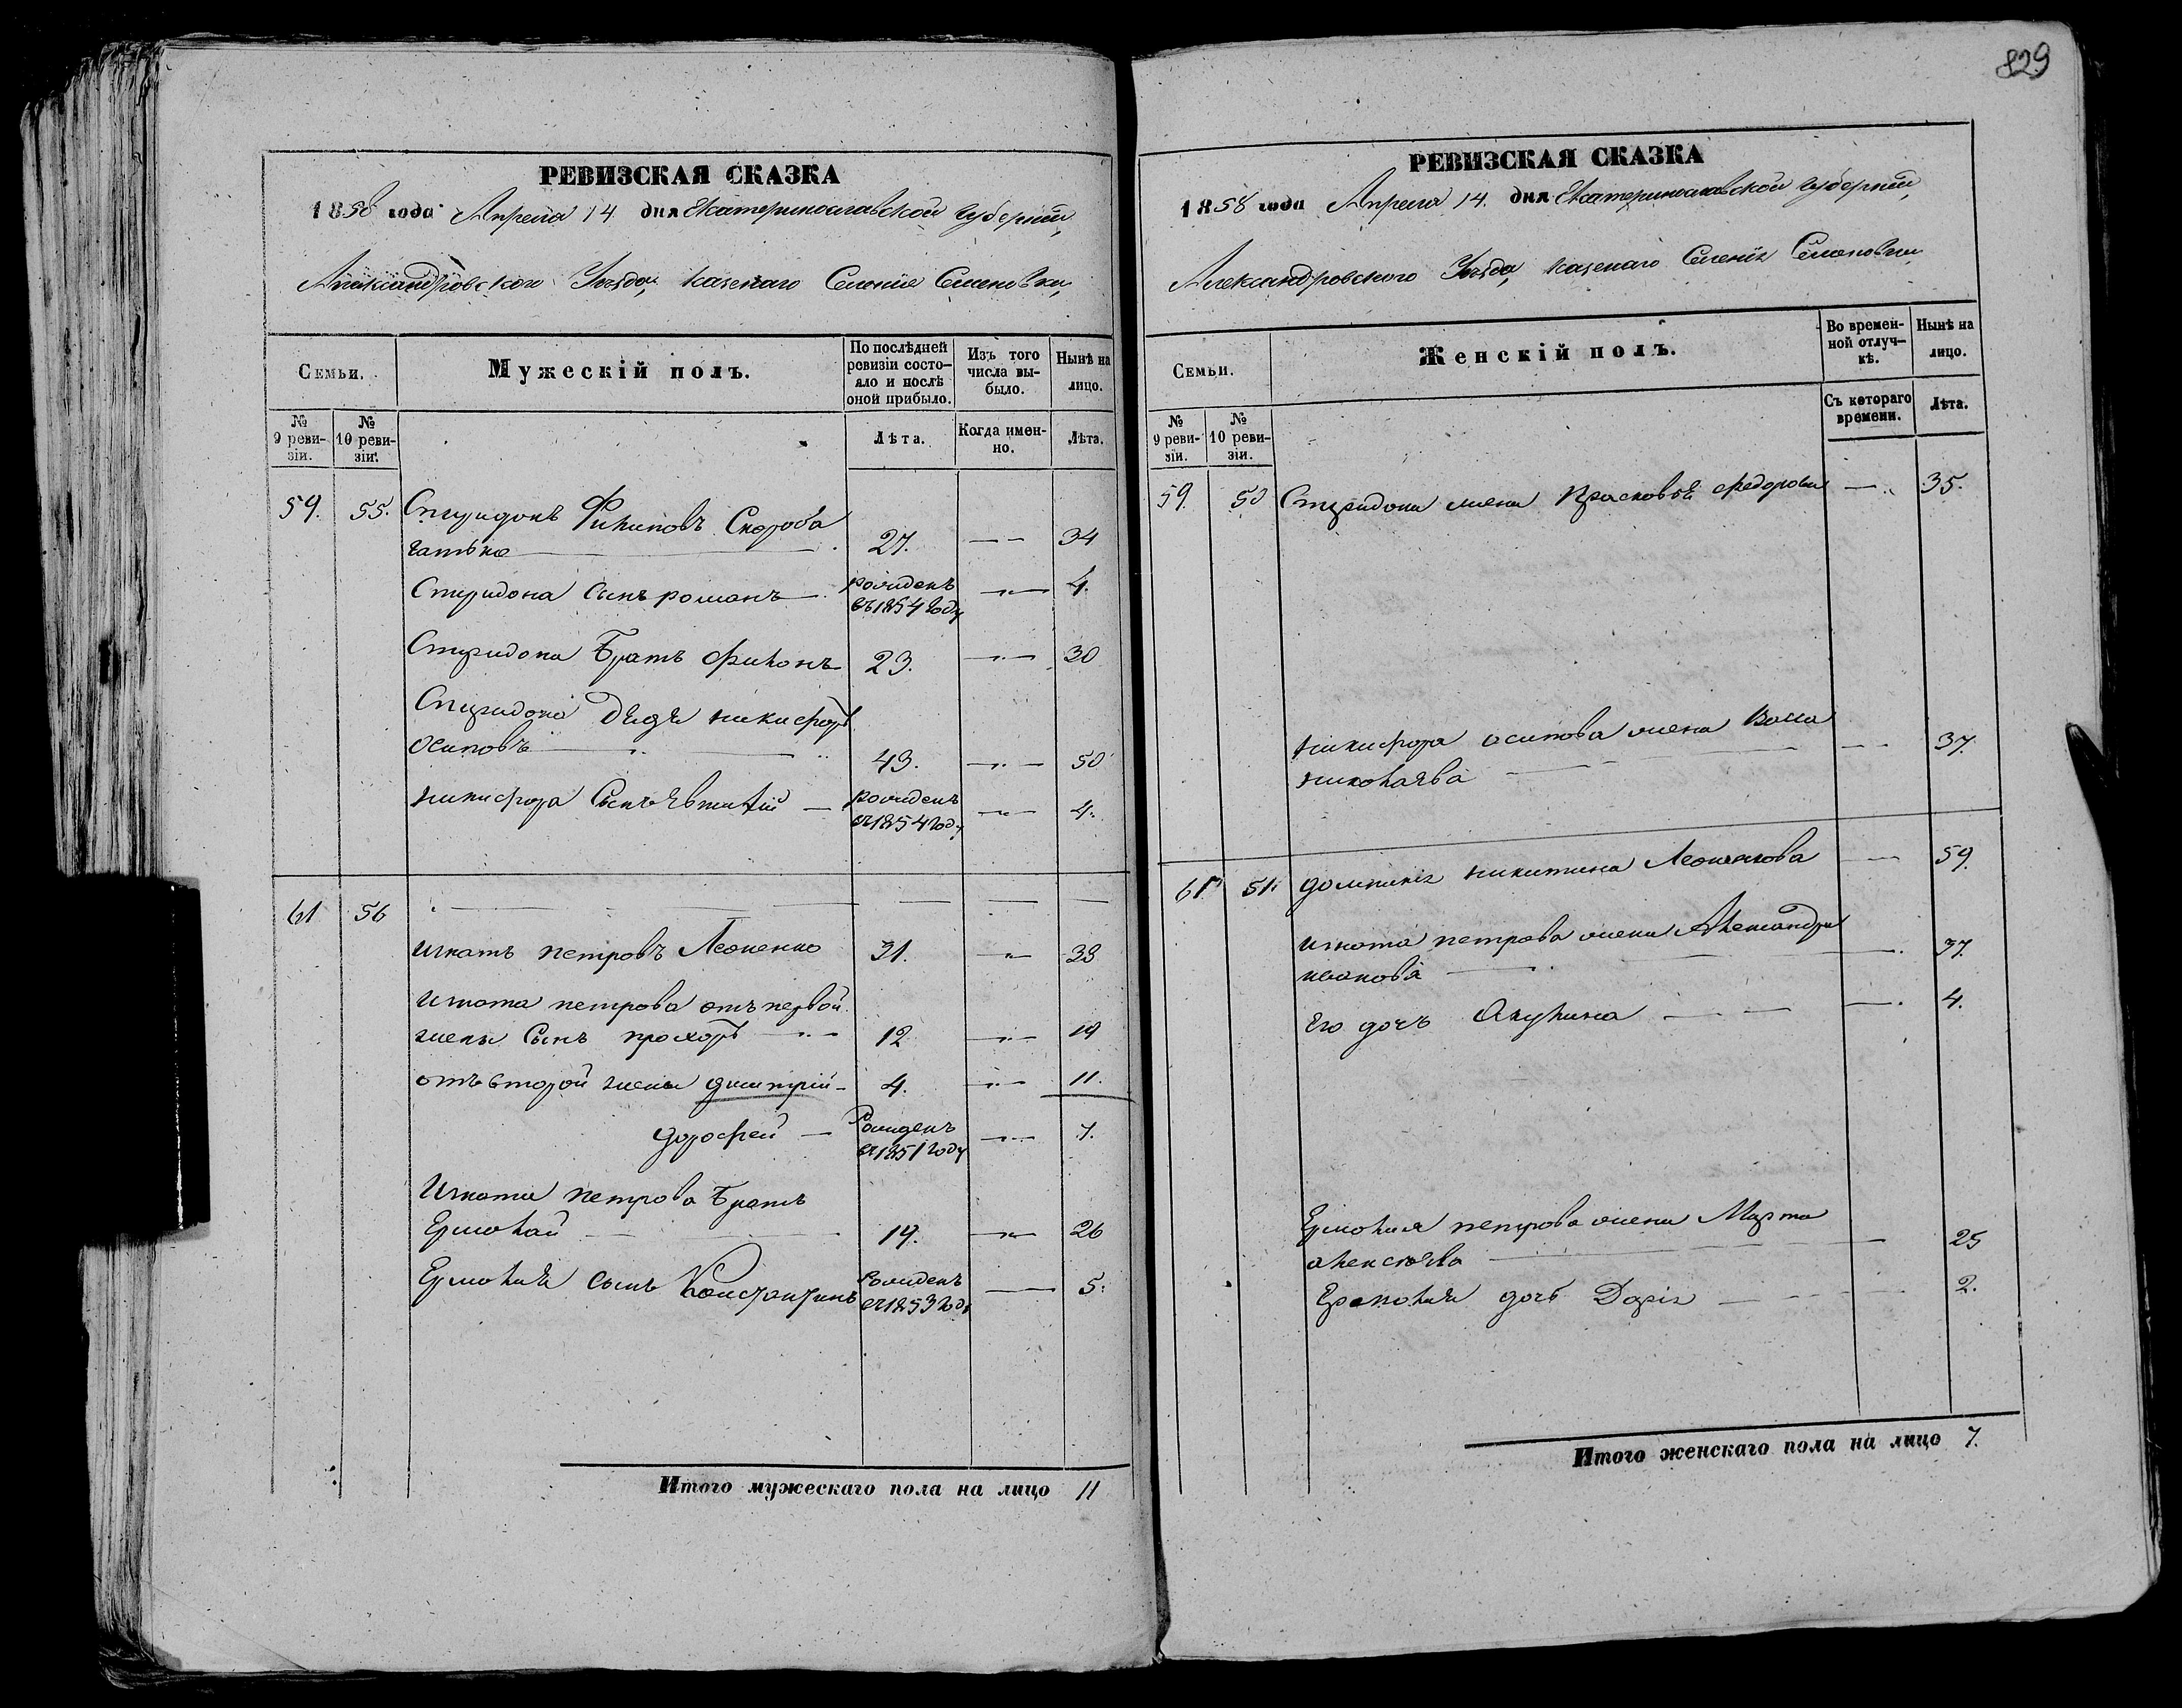 829
РЕВИЗСКАЯ СКАЗКА
1858 года Апреля 14 дня Екатеринославской Губернии,
Александровского Уѣзда, казенаго Селенія Семеновки,
Семьи.
Мужескій полъ.
По послѣдней ревизіи состояло и послѣ оной прибыло.
Изъ того числа выбыло.
Нынѣ на лицо.
№ 9 ревизіи.
№ 10 ревизіи.
Лѣта.
Когда именно.
Лѣта.
59. 55. Спиридонъ Филиповъ Скороба
гатько 27. 34
Спиридона Сынъ романъ рожденъ въ 1854 году 4.
Спиридона Братъ филонъ 23. 30
Спиридона Дядя никифоръ
осиповъ 43. 50
никифора Сынъ Евтифій рожденъ въ 1854 году 4.
61 56
игнатъ петровъ Леоненко 31. 38
игната петрова отъ первой
жены Сынъ прохоръ 12 19
отъ второй жены дмитрій 4. 11.
дорофей Рожденъ въ 1851 году 7.
Игната петрова Братъ
Ермолай 19. 26
Ермолая сынъ Константинъ Рожденъ въ 1853 году 5.
Итого мужескаго пола на лицо 11
РЕВИЗСКАЯ СКАЗКА
1858 года Апреля 14 дня Екатеринославской Губернии,
Александровского Уѣзда, казенаго Селенія Семеновки
Семьи.
Женскій полъ.
Во временной отлучкѣ.
Нынѣ на лицо.
№ 9 ревизіи.
№ 10 ревизіи.
Съ котораго времени.
Лѣта.
59. Спиридона жена Прасковья федорова 35.
никифора осипова жена Васса
николаева 37.
61. 51. домникія никитина Леоненкова 59.
игната петрова жена Александра
иванова 37.
Его дочь Акулина 4.
Ермолая петрова жена Марта
алексѣева 25
Ермолая дочь Дарія 2.
Итого женскаго пола на лицо 7.